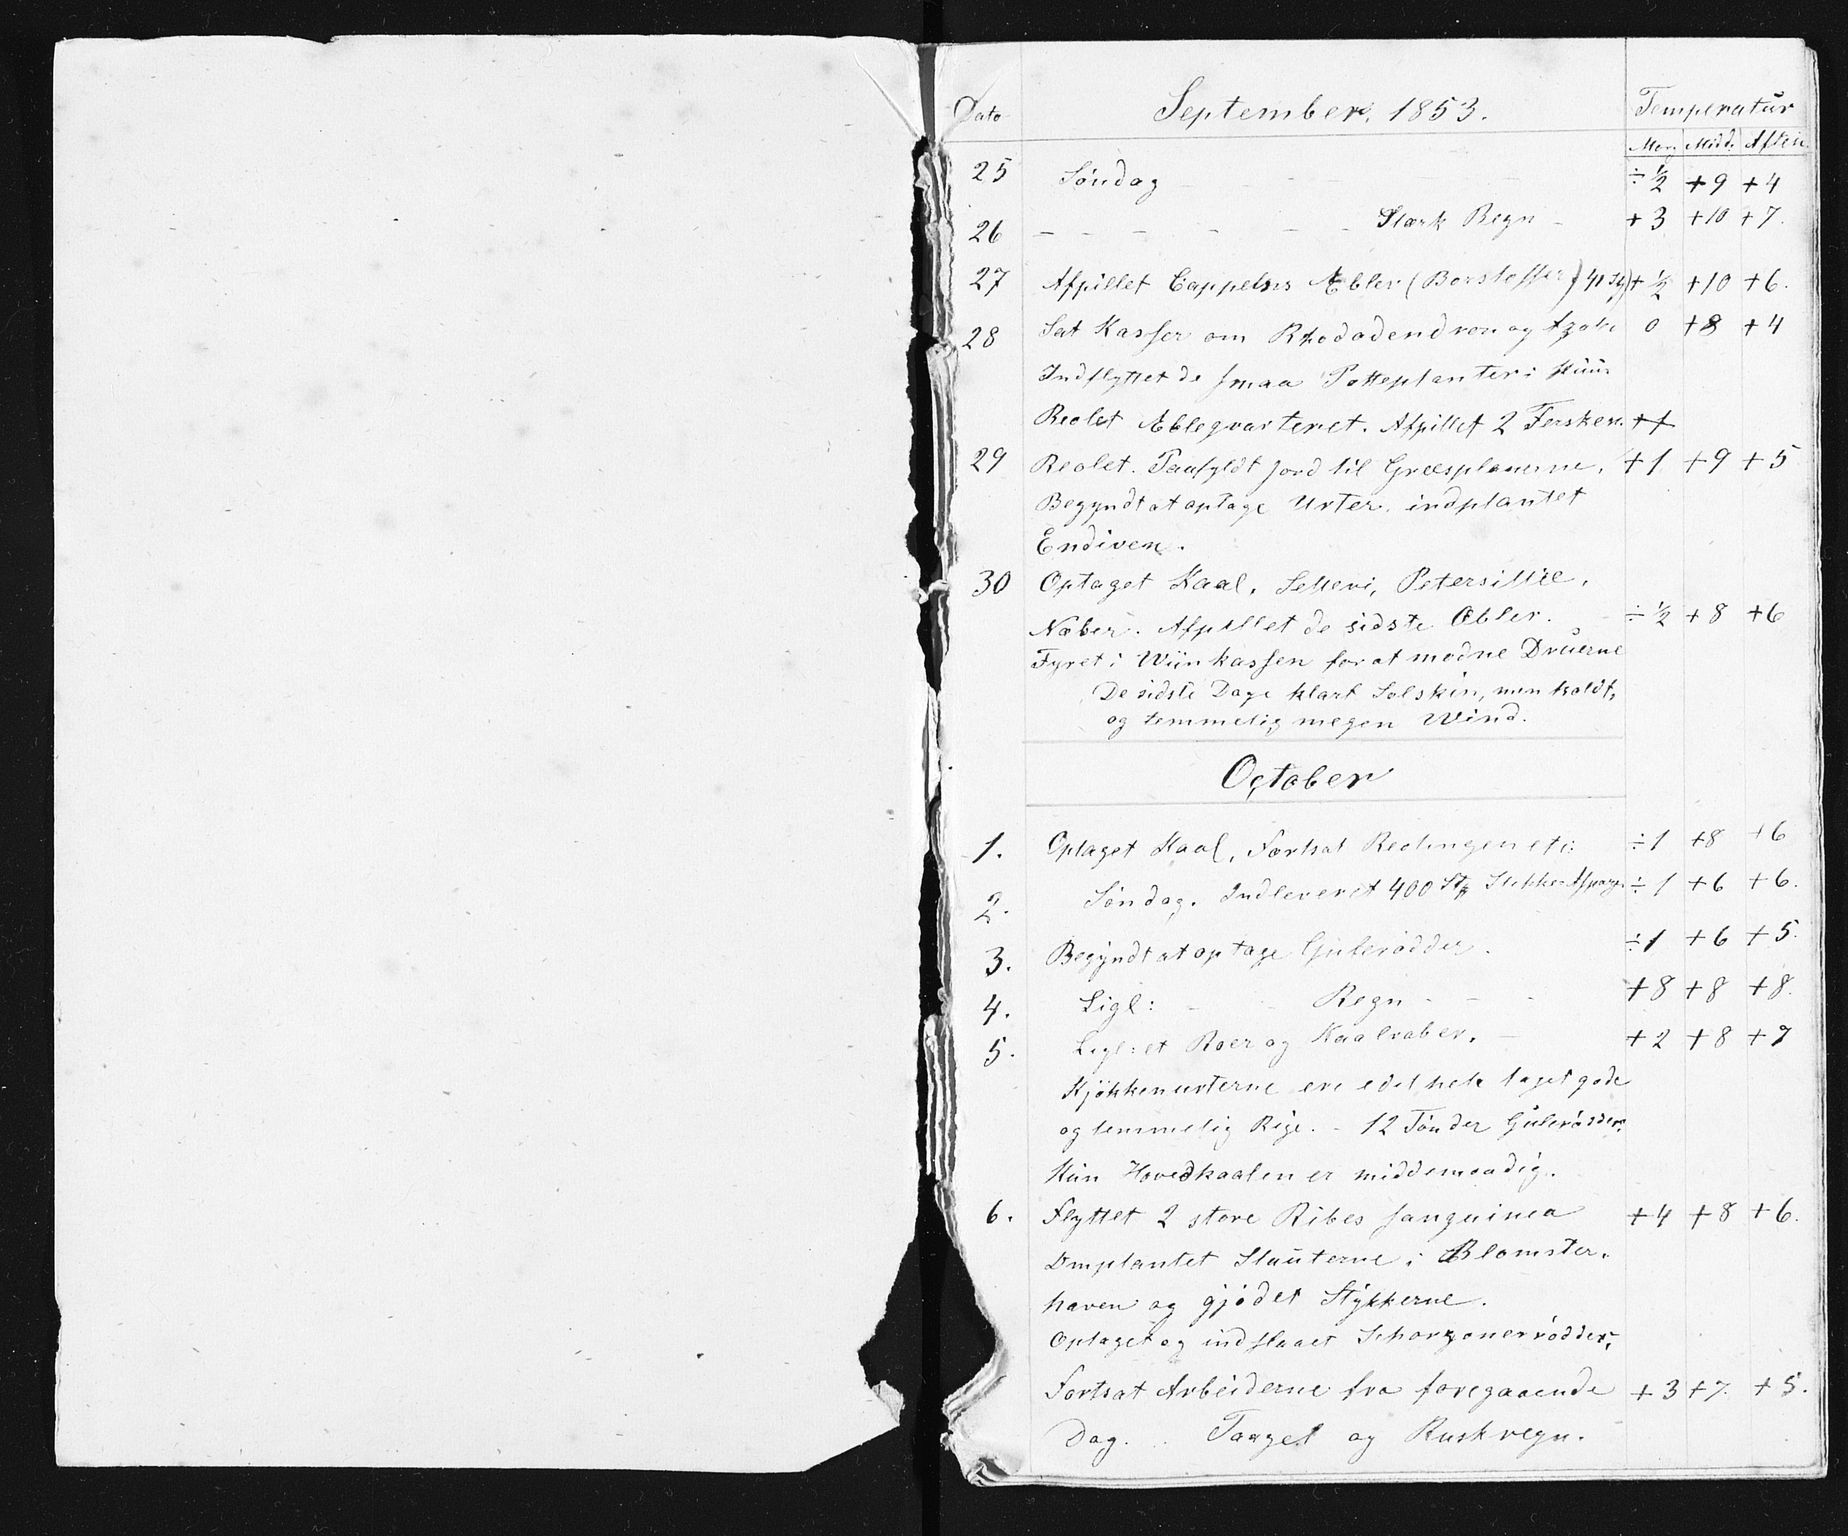 Dato September, 1853. Temperatur
Mor. Midd. Aften
25 Søndag - - - - - ÷½ +9 +4
26 - - - - - - Stærk Regn - +3 +10 +7.
27 Afpillet Cappelns Æbler (Borstoffer) +½ +10 +6.
28 Sat Kasser om Rhododendron og 0 +8 +4
Indflyttet de smaa Potteplanter i Huus
Reolet Æblegvarteret. Afpillet 2 Fersken.
29 Reolet. Paafyldt Jord til Græsplanerne. +1 +9 +5
Begyndt at optage Urter. indplantet
Endiven.
30 Optaget Kaal, Selleri, Petersillie,
Næber. Afpillet de sidste Æbler. ÷½ +8 +6
Fyret i Wiinkassen for at modne Druerne
De sidste Dage klart Solskin, men koldt,
og temmelig megen Wind.
October
1. Optaget Kaal, Fortsat Reolingen etc: ÷1 +8 +6
2. Søndag. Indleveret 400 Stk ÷1 +6 +6.
3. Begyndt at optage Gulerødder. ÷1 +6 +5.
4. Ligl: - - Regn - - - +8 +8 +8.
5. Ligl: et Roer og Kaalraber. - +2 +8 +7
Kjøkkenurterne ere i det hele taget gode
og temmelig Rige. - 12 Tønder Gulerødder.
Kun Hovedkaalen er middemaadig.
6. Flyttet 2 store Ribes sanguinea +4 +8 +6.
Omplantet Stauterne i Blomster-
haven og gjødet Stykkerne.
Optaget og indslaaet Schorzonerrødder,
Fortsat Arbeiderne fra foregaaende +3 +7. +5.
Dag. . . Taaget og Ruskregn.